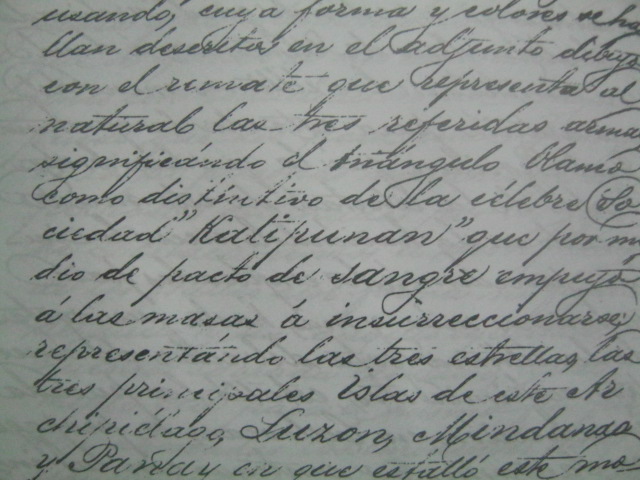 usando, cuya forma y colores se ha
llan descritos en el adjunto dibujo
con el remate que representa al
natural las tres referidas armas
significándo el triángulo blanco
como distintivo de la célebre So
ciedad "Katipunan" que por me
dio de pacto de sangre empujó
á las masas á insurreccionarse;
representándo las tres estrellas, las
tres principales Islas de este Ar
chipiélago, Luzon, Mindanao
y Panay en que estalló este mo